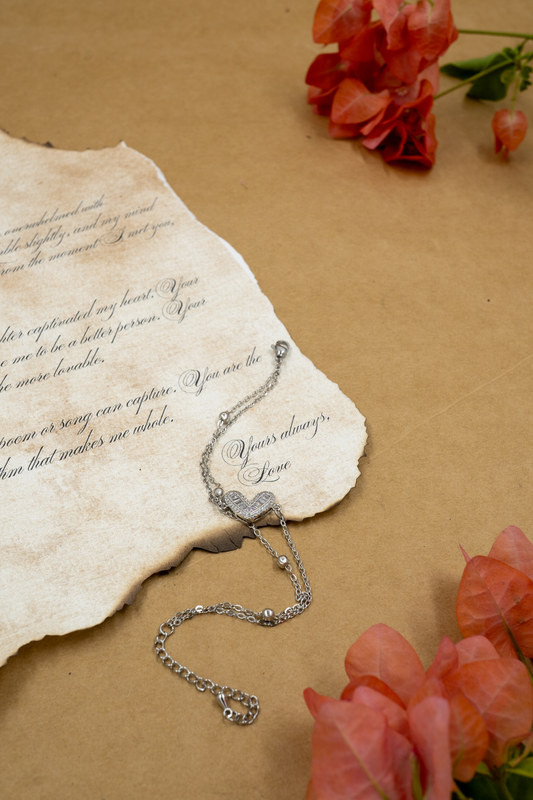 overwhelmed with
slightly, and my mind
from the moment I met you,
captivated my heart. Your
e me to be a better person. Your
he more lovable.
poem or song can capture. You are the
thm that makes me whole.
Yours always,
Love